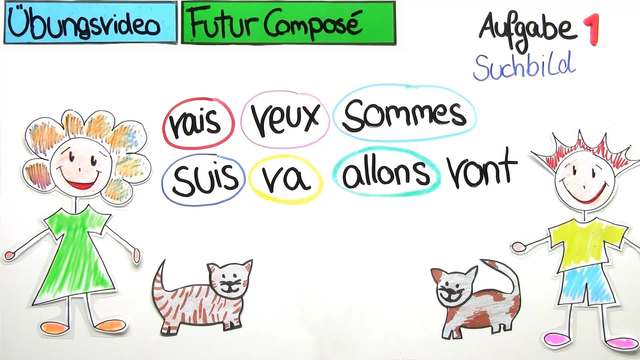 Übungsvideo Futur Composé
Aufgabe 1
Suchbild
vais veux sommes
suis va allons vont